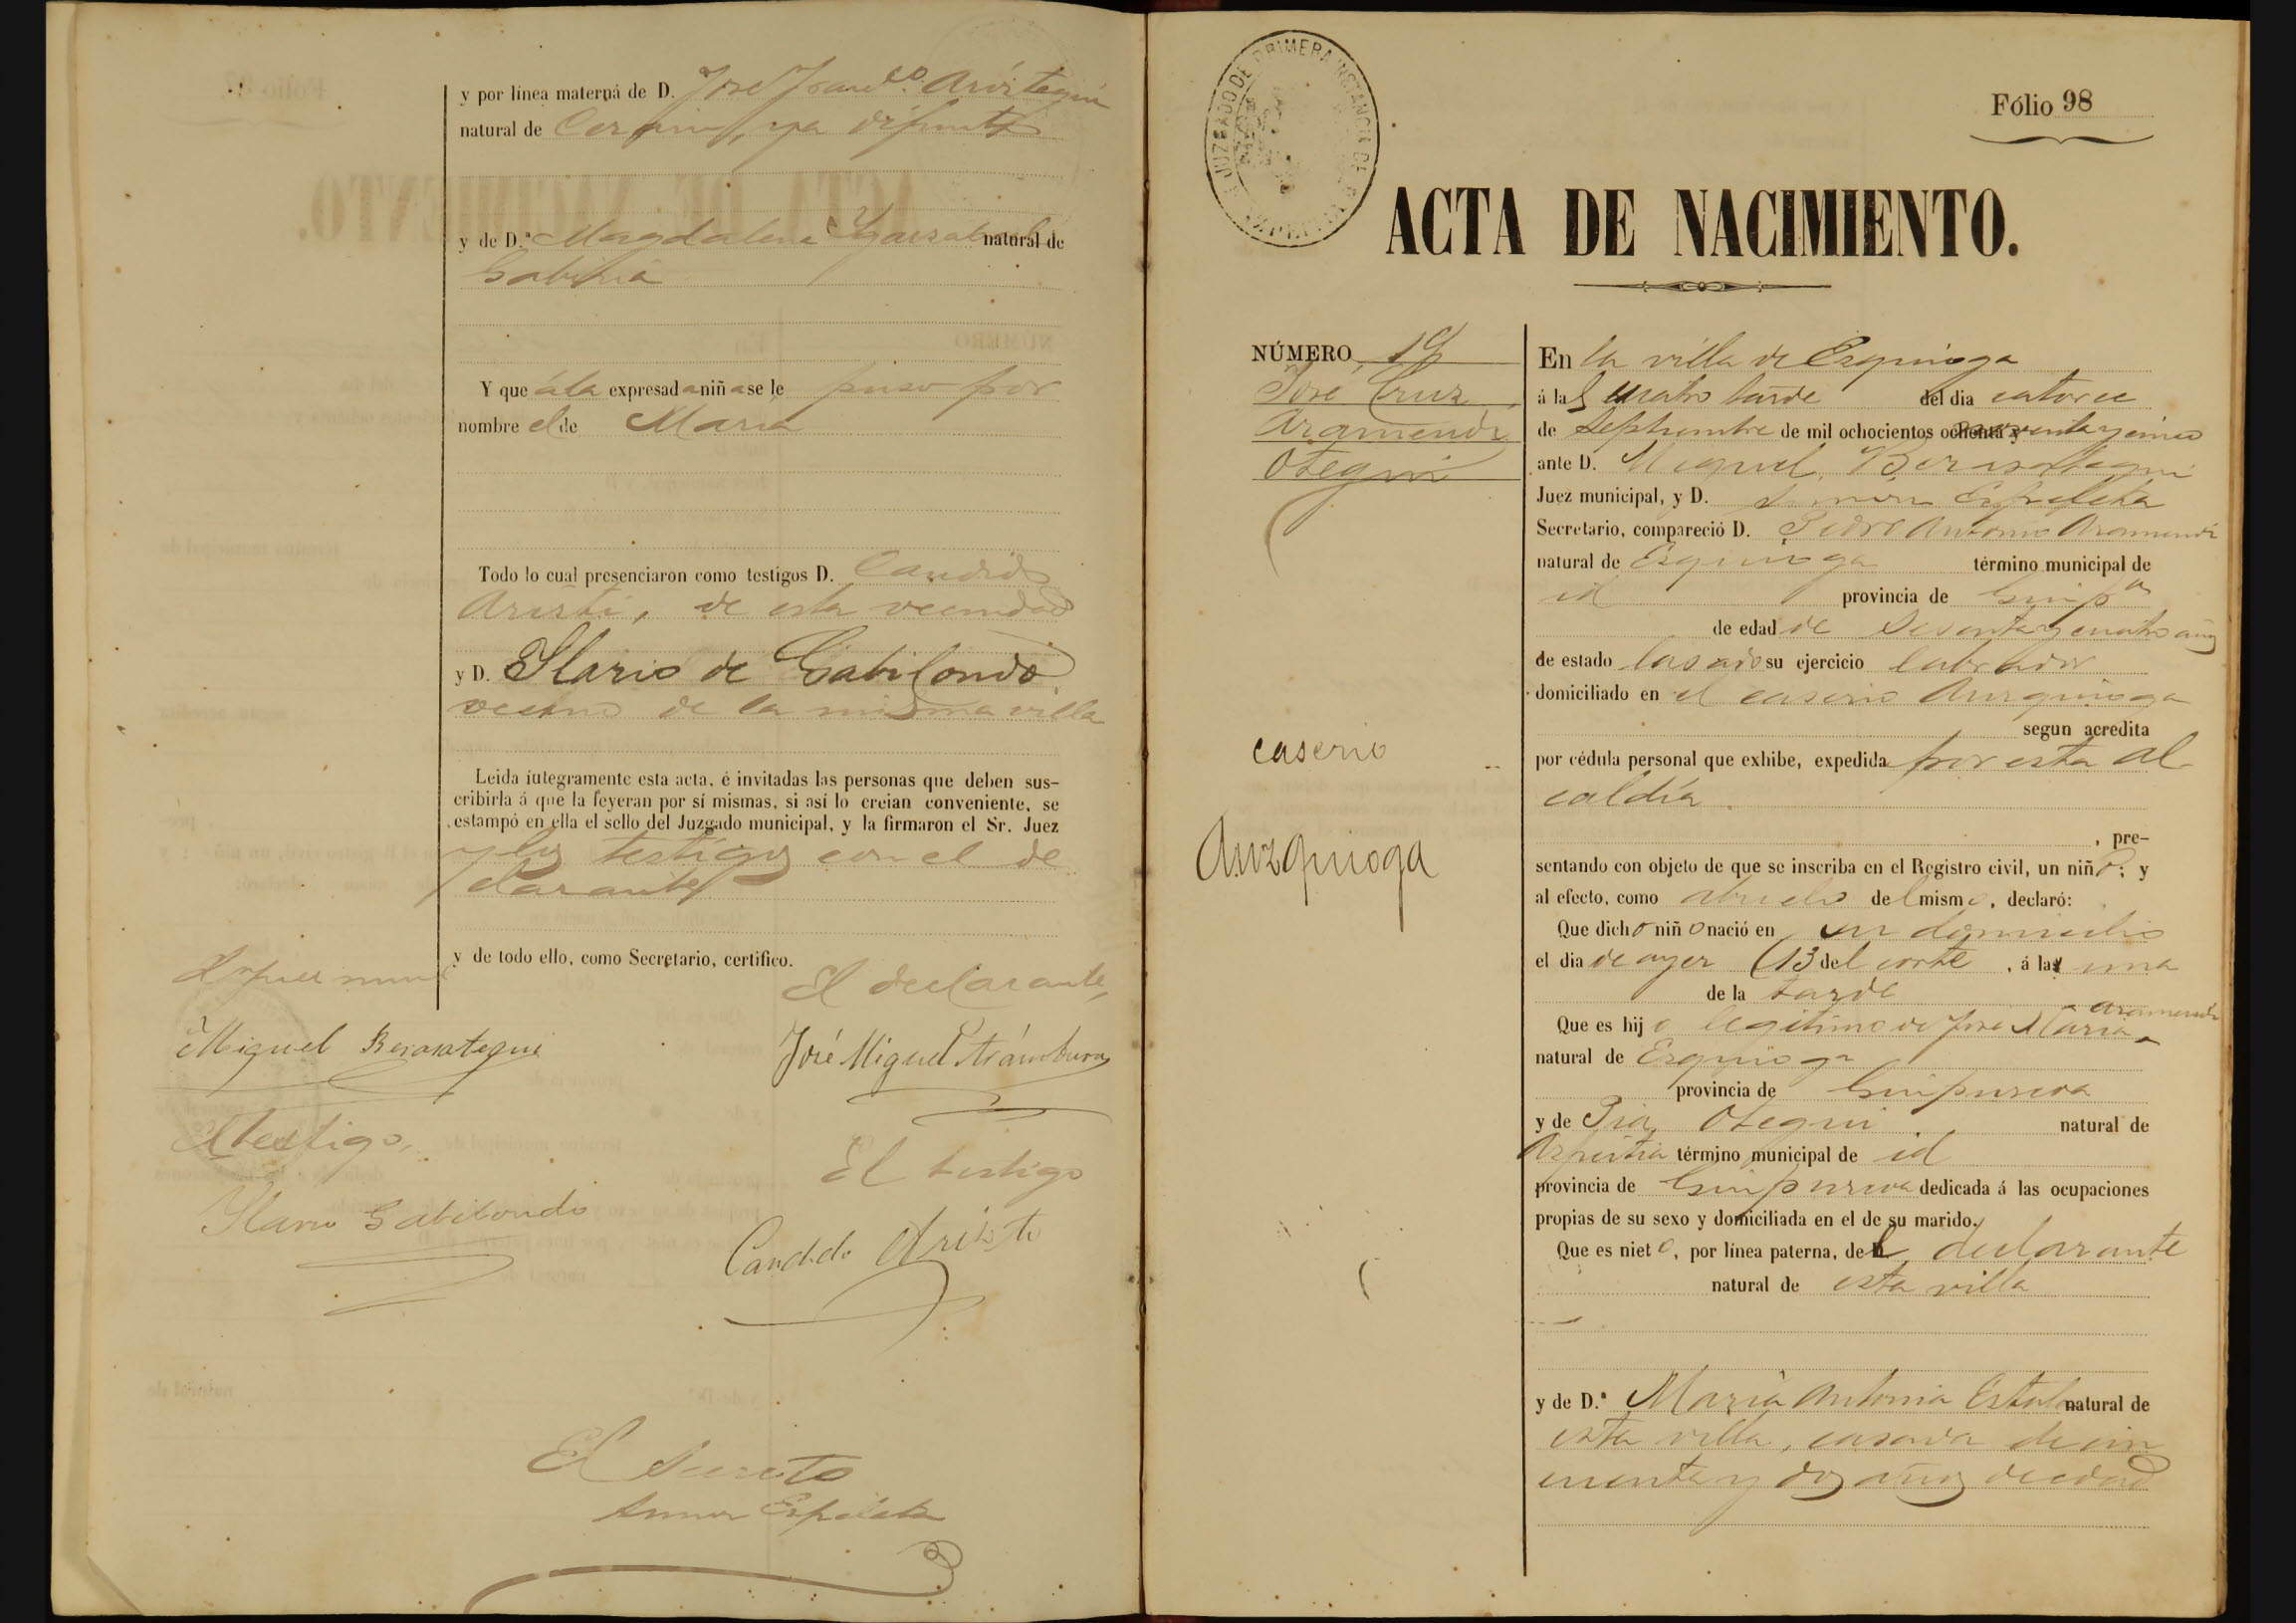 y por línea materna de D. José Franco. Aróstegui
natural de Cerain, ya difunto
y de D.ª Magdalena natural de
Gabiria
Y que á la expresada niña se le puso por
nombre el de María
Todo lo cual presenciaron como testigos D. Candido
Aristi, de esta vecindad
y D. Ylario de Gabilondo
vecino de la misma villa
Leida íntegramente esta acta, é invitadas las personas que deben sus-
cribirla á que la leyeran por sí mismas, si así lo creian conveniente, se
estampó en ella el sello del Juzgado municipal, y la firmaron el Sr. Juez
y los testigos con el de
clarante
y de todo ello, como Secretario, certifico.
El juez mun
Miguel Berasategui
El declarante,
José Miguel Aramburu
El testigo,
Ylario Gabilondo
El testigo
Candido Aristi
El Secreto
Espeleta
JUZGADO DE PRIMERA INSTANCIA DE
Fólio 98
ACTA DE NACIMIENTO.
NÚMERO 19
José Cruz
Aramendi
Otegui
caserio
Anzquioga
En la villa de Ezquioga
á las cuatro tarde del dia catorce
de Septiembre de mil ochocientos ochenta y noventa y cinco
ante D. Miguel Berasategui
Juez municipal, y D. Espeleta
Secretario, compareció D. Pedro Antonio Aramendi
natural de Ezquioga término municipal de
id provincia de Guipa
de edad de sesenta y cuatro años
de estado casado su ejercicio labrador
domiciliado en el caserio Anzquioga
segun acredita
por cédula personal que exhibe, expedida por esta al
caldía
, pre-
sentando con objeto de que se inscriba en el Registro civil, un niño; y
al efecto, como abuelo del mismo, declaró:
Que dicho niño nació en su domicilio
el dia de ayer (13 del corte , á la una
de la tarde
Que es hijo legitimo de José Maria Aramendi
natural de Ezquioga
provincia de Guipuzcoa
y de Pia Otegui natural de
Azpeitia término municipal de id
provincia de Guipuzcoa dedicada á las ocupaciones
propias de su sexo y domiciliada en el de su marido.
Que es nieto, por línea paterna, del declarante
natural de esta villa
y de D.ª Maria Antonia natural de
esta villa, casada de cin
cuenta y dos años de edad